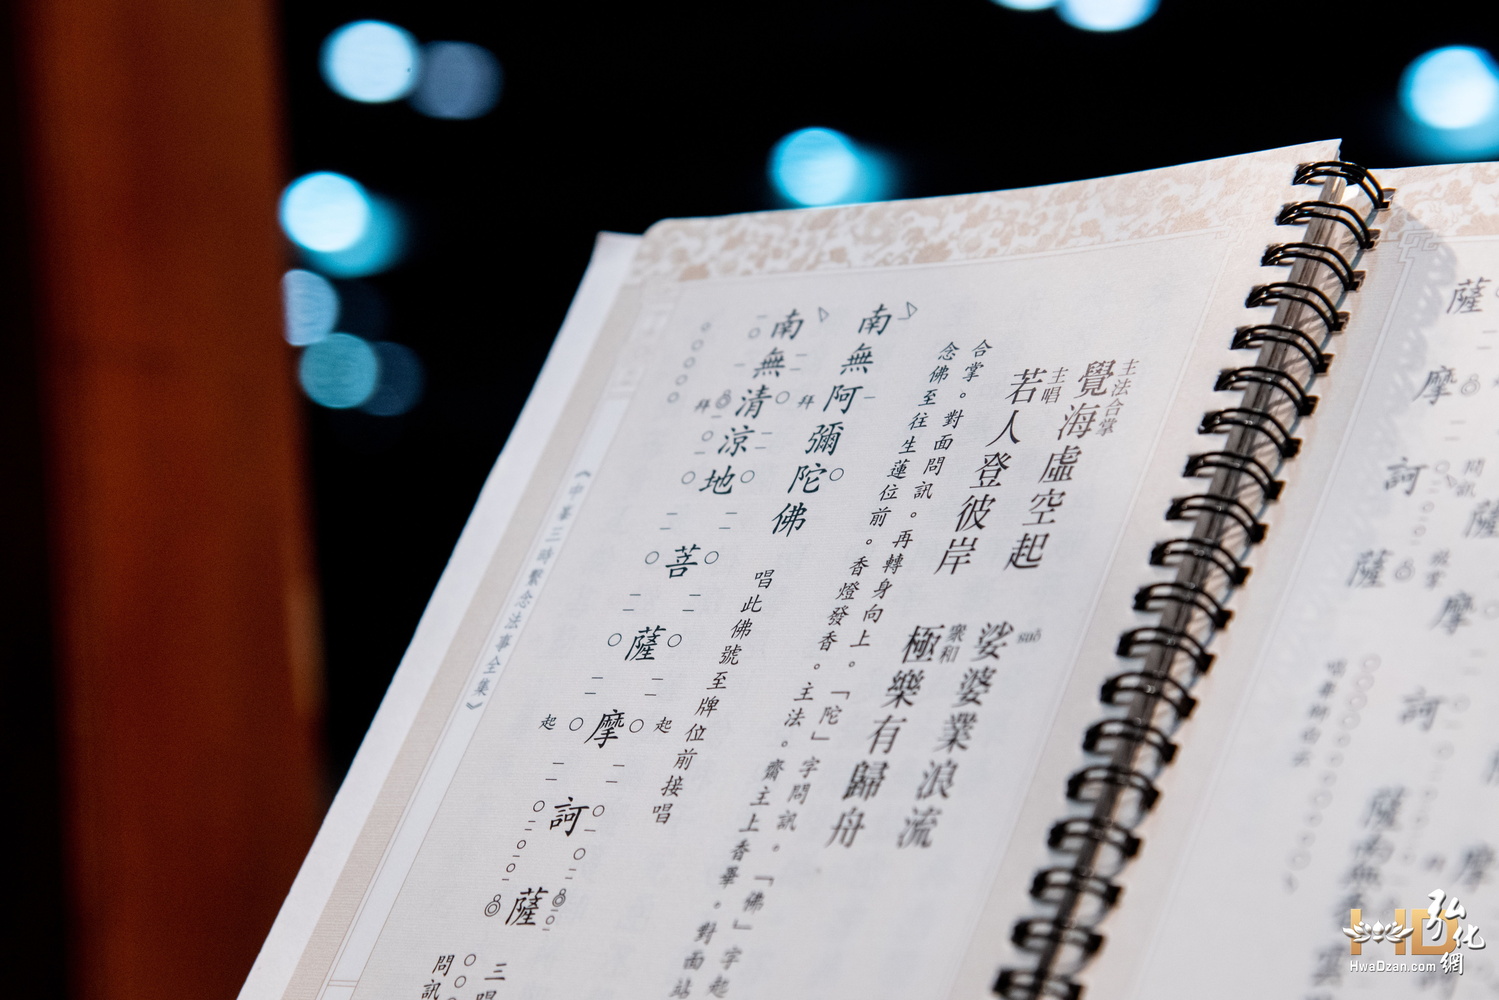 主法合掌
覺海虛空起
娑婆業浪流
suō
主唱
若人登彼岸
眾和
極樂有歸舟
合掌。對面問訊。再轉身向上。「陀」字問訊。「佛」字起
念佛至往生蓮位前。香燈發香。主法。齋主上香畢。對面站
南無阿彌陀佛
唱此佛號至牌位前接唱
拜
起
南無清涼地
菩薩摩訶薩
拜
起
三唱
問訊
《中峯三時繫念法事全集》
薩
摩
訶
薩
問訊
薩
摩
訶
薩
摩
HD
弘化網
HwaDzan.com